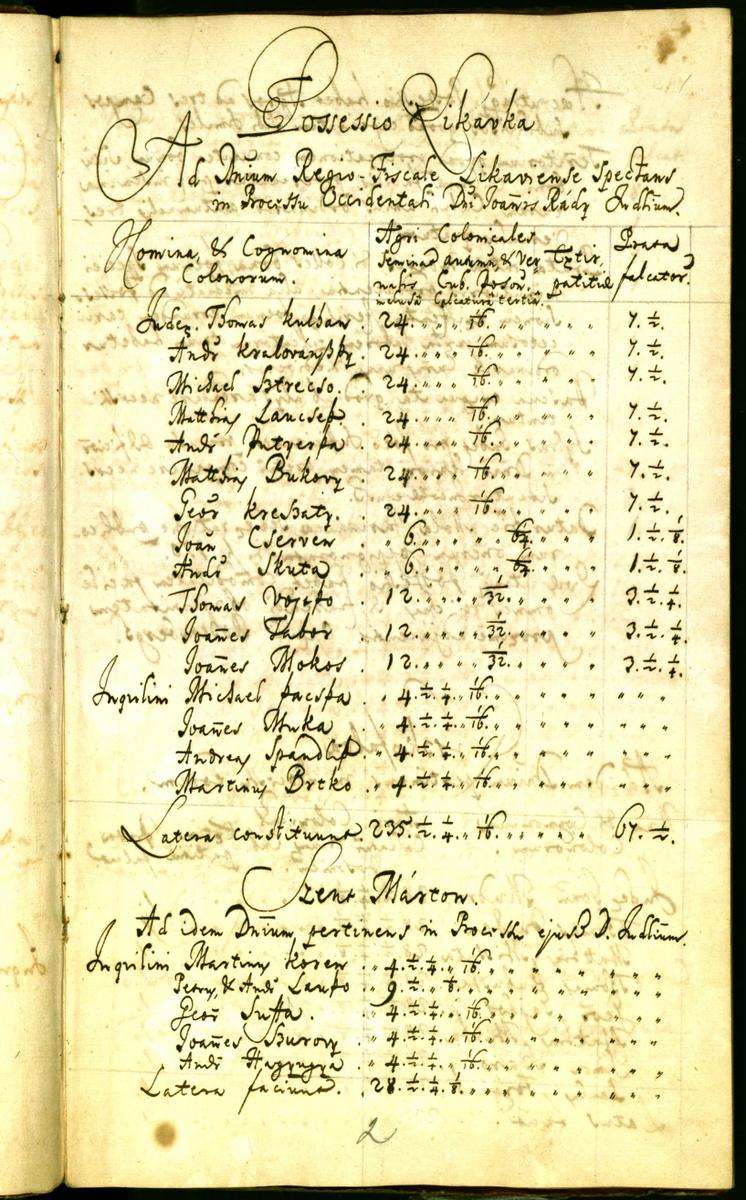 Possessio Likavka
Ad Dnium Regio-Fiscale Likaviense spectans
in Processu Occidentali Dni Joannis Rády Judlium.
Nomina, & Cognomina
Colonorum.
Agri Colonicales
Seminat. autumn. & Ver
nalis Cub. Poson.
inclusa Calcatura tertia.
Extir
patitiæ
Prata
falcator.
Judex. Thomas kulhan. 24. 1/16. 7. 1/2.
Andr kralovánßky 24. 1/16. 7. 1/2.
Michael Sztrecso. 24. 1/16. 7. 1/2.
Matthias Laucsek. 24. 1/16. 7. 1/2.
Andr 24. 1/16. 7. 1/2.
Matthias Bukovy 24. 1/16. 7. 1/2.
Geor kreßaty. 24. 1/16. 7. 1/2.
Joan Cserven 6. 1/64. 1. 1/2. 1/8.
Andr Skuta 6. 1/64. 1. 1/2. 1/8.
Thomas Vojtko 12. 1/32. 3. 1/2. 1/4.
Joannes Tabor 12. 1/32. 3. 1/2. 1/4.
Joannes Mokos 12. 1/32. 3. 1/2. 1/4.
Inquilini Michael 4. 1/2. 1/4. 1/16.
Joannes Muka 4. 1/2. 1/4. 1/16.
Andreas Spandlik 4. 1/2. 1/4. 1/16.
Martinus Brtko 4. 1/2. 1/4. 1/16.
Latera constituunt. 235. 1/2. 1/4. 1/16. 67. 1/2.
Szent Márton.
Ad idem Dnium pertinens in Processu ejusd D. Judlium.
Inquilini Martinus koren 4. 1/2. 1/4. 1/16.
Petrus, & Andr Lauko 9. 1/2. 1/8.
Geor Sutta. 4. 1/2. 1/4. 1/16.
Joannes Szurovy 4. 1/2. 1/4. 1/16.
Andr 4. 1/2. 1/4. 1/16.
Latera faciunt. 28. 1/2. 1/4. 1/8.
2